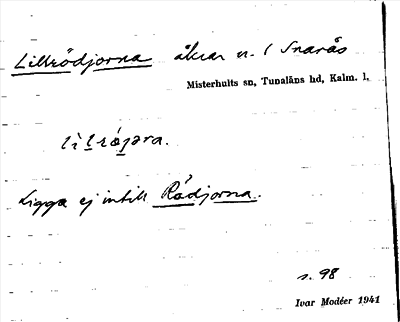 Lillrödjorna åkrar n. l Snarås
Misterhults sn, Tunaläns hd, Kalm. l.
Ligga ej intill Rödjorna.
s. 98
Ivar Modéer 1941